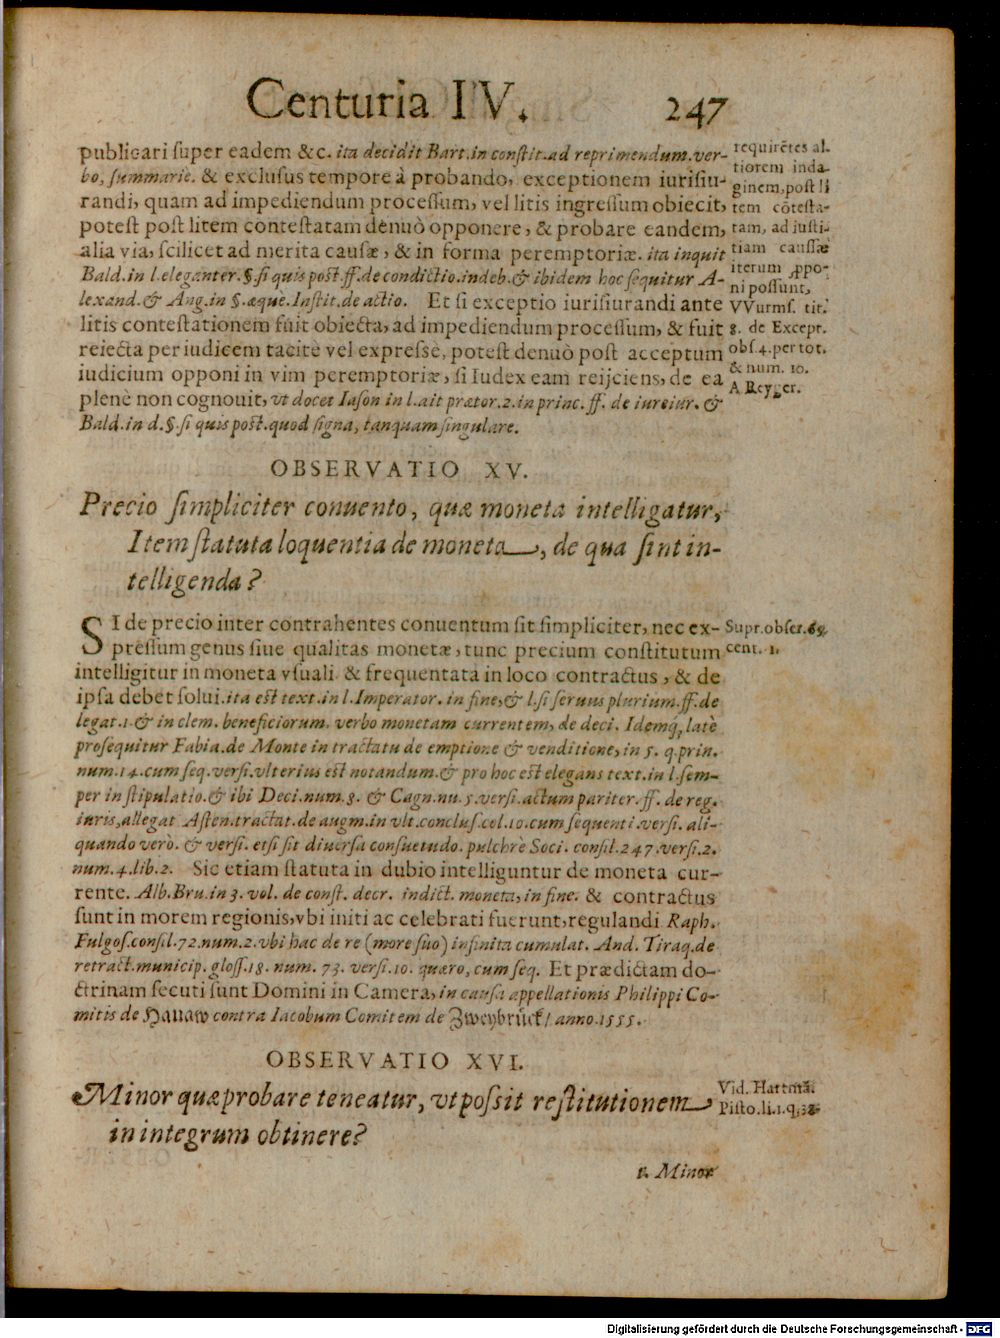 Centuria IV. 247
publicari super eadem &c. ita decidit Bart. in constit. ad reprimendum. ver-
bo, summarie. & exclusus tempore à probando, exceptionem iurisiu-
randi, quam ad impediendum processum, vel litis ingressum obiecit,
potest post litem contestatam denuò opponere, & probare eandem,
alia via, scilicet ad merita causæ, & in forma peremptoriæ. ita inquit
Bald. in l. eleganter. §. si quis post. ff. de condictio. indeb. & ibidem hoc sequitur A-
lexand. & Ang. in §. æquè. Instit. de actio. Et si exceptio iurisiurandi ante
litis contestationem fuit obiecta, ad impediendum processum, & fuit
reiecta per iudicem tacitè vel expressè, potest denuò post acceptum
iudicium opponi in vim peremptoriæ, si Iudex eam reijciens, de ea
plenè non cognouit, vt docet Iason in l. ait prætor. 2. in princ. ff. de iureiur. &
Bald. in d. §. si quis post. quod signa, tanquam singulare.
requirẽtes al-
tiorem inda-
ginem, post li
tem cõtesta-
tam, ad iusti-
tiam caussæ
iterum oppo-
ni possunt,
VVurms. tit.
8. de Except.
obs. 4. per tot.
& num. 10.
A Reyger.
OBSERVATIO XV.
Precio simpliciter conuento, quæ moneta intelligatur,
Item statuta loquentia de moneta, de qua sint in-
telligenda?
SI de precio inter contrahentes conuentum sit simpliciter, nec ex-
pressum genus siue qualitas monetæ, tunc precium constitutum
intelligitur in moneta vsuali & frequentata in loco contractus, & de
ipsa debet solui. ita est text. in l. Imperator. in fine, & l. si seruus plurium. ff. de
legat. 1. & in clem. beneficiorum. verbo monetam currentem, de deci. Idemq́; latè
prosequitur Fabia. de Monte in tractatu de emptione & venditione, in 5. q. prin.
num. 14. cum seq. versi. vlterius est notandum. & pro hoc est elegans text. in l. sem-
per in stipulatio. & ibi Deci. num. 3. & Cagn. nu. 5. versi. actum pariter. ff. de reg.
iuris, allegat Asten. tractat. de augm. in vlt. conclus. col. 10. cum sequenti. versi. ali-
quando verò. & versi. etsi sit diuersa consuetudo. pulchrè Soci. consil. 247. versi. 2.
num. 4. lib. 2. Sic etiam statuta in dubio intelliguntur de moneta cur-
rente. Alb. Bru. in 3. vol. de const. decr. indict. moneta, in fine. & contractus
sunt in morem regionis, vbi initi ac celebrati fuerunt, regulandi Raph.
Fulgos. consil. 72. num. 2. vbi hac de re (more suo) infinita cumulat. And. Tiraq. de
retract. municip. gloss. 18. num. 73. versi. 10. quæro, cum seq. Et prædictam do-
ctrinam secuti sunt Domini in Camera, in causa appellationis Philippi Co-
mitis de Hanaw contra Iacobum Comitem de Zweybrück/ anno. 1555.
Supr. obser. 65.
cent. 1.
OBSERVATIO XVI.
Minor quæ probare teneatur, vt possit restitutionem
in integrum obtinere?
Vid. Hartmã.
Pisto. li. 1. q. 32.
1. Minor
Digitalisierung gefördert durch die Deutsche Forschungsgemeinschaft - DFG